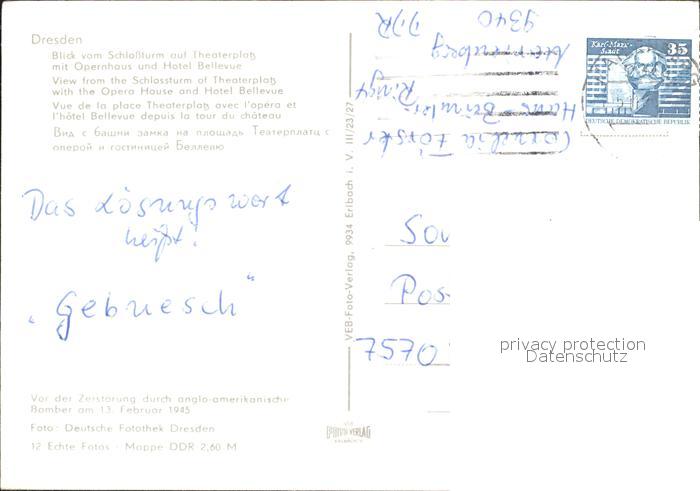 Dresden
Blick vom Schloßturm auf Theaterplatz
mit Opernhaus und Hotel Bellevue
View from the Schlossturm of Theaterplatz
with the Opera House and Hotel Bellevue
Vue de la place Theaterplatz avec l'opéra et
l'hôtel Bellevue depuis la tour du château
Вид с башни замка на площадь Театерплатц с
оперой и гостиницей Беллевю
Das Lösungswort
heißt!
„Gebuesch"
Vor der Zerstörung durch anglo-amerikanische
Bomber am 13. Februar 1945
Foto: Deutsche Fotothek Dresden
12 Echte Fotos · Mappe DDR 2,60 M
VEB-Foto-Verlag, 9934 Erlbach i. V. III/23/27
VERLAG
Cornelia Förster
Hans-
Ring
9340
DDR
Karl-Marx-
Stadt
35
DEUTSCHE DEMOKRATISCHE REPUBLIK
Sou
Pos-
7570
privacy protection
Datenschutz